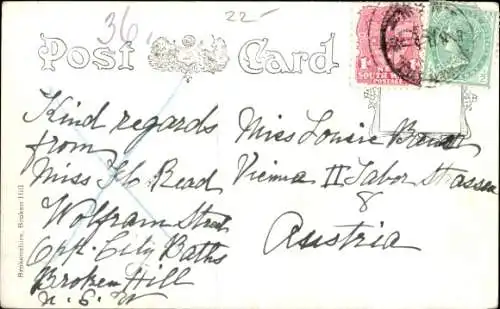 36
22-
Post Card
Kind regards
from
Miss Flo Read
Wolfram Street
Opp. City Baths
Broken Hill
N. S. W
Miss Louise
Vienna II Tabor Strassen
8
Austria
Brokenshire, Broken Hill
SOUTH WALES